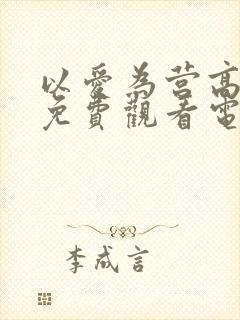 以愛為营高
免費觀看電
李成言